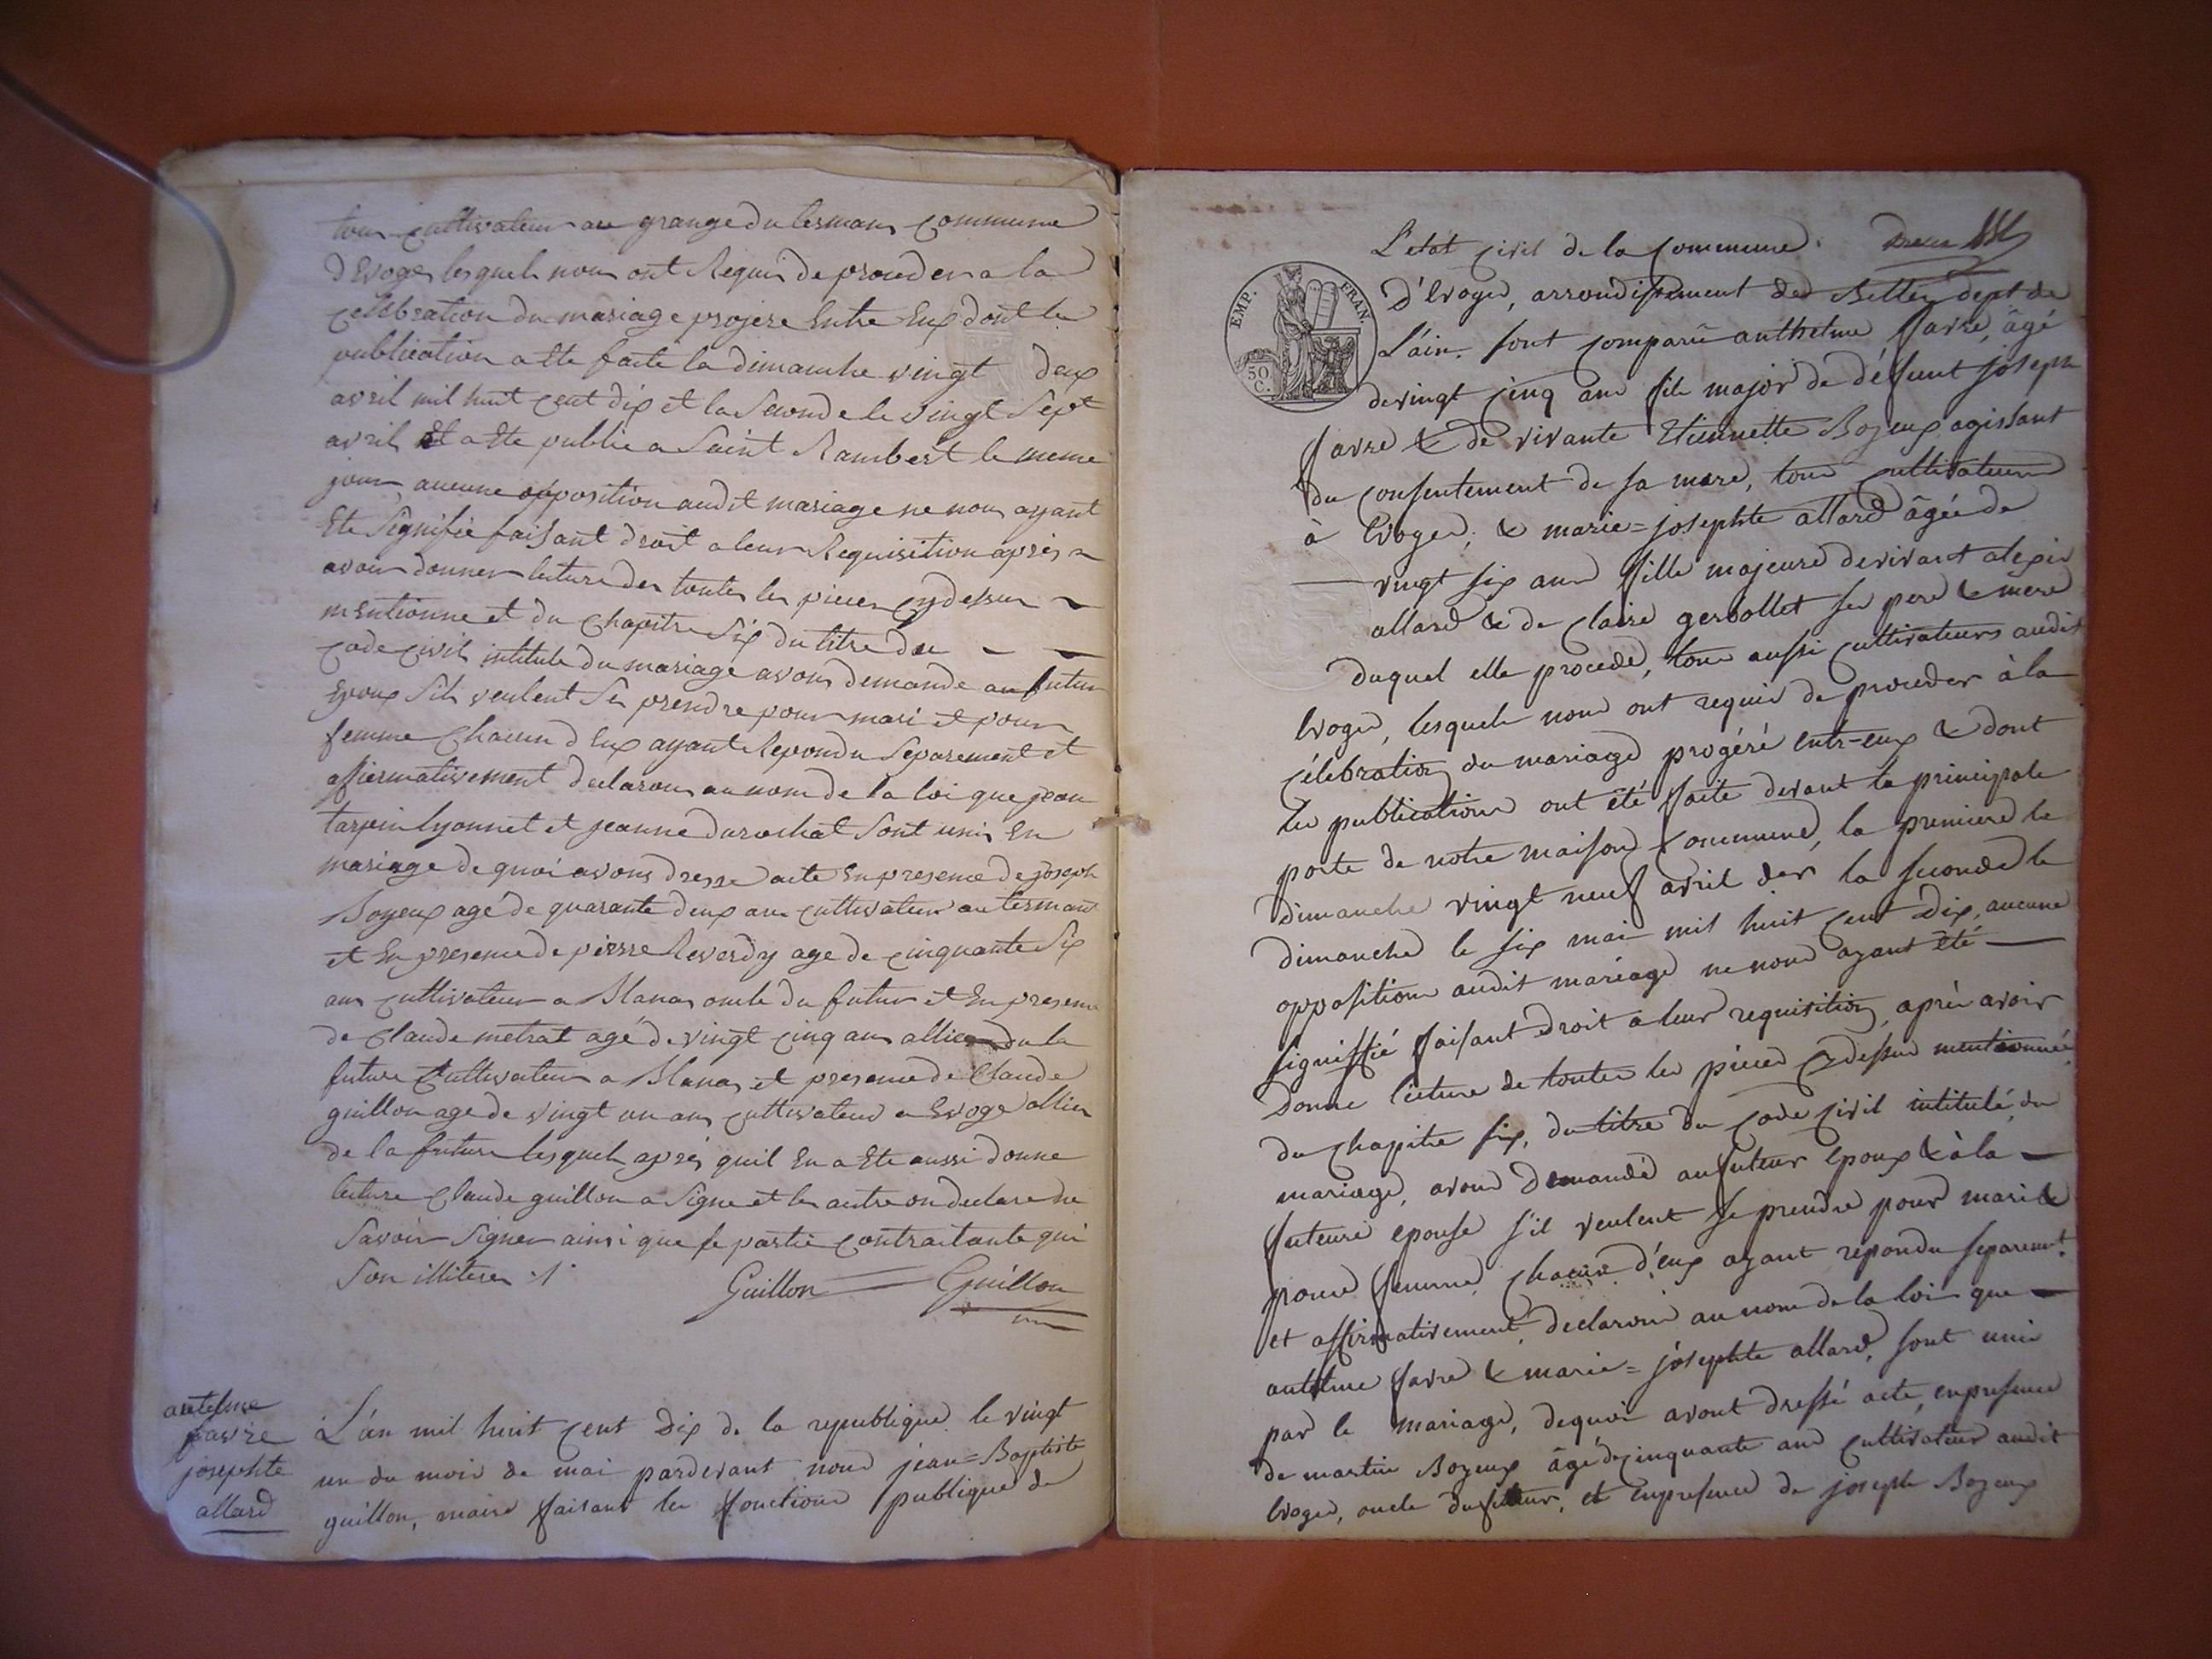 tous cultivateur au grange du lesmans commune
d Evoges lesquels nous ont Requis de proceder a la
celebration du mariage projere Entre Eux dont la
publication a Ete faite la dimanche vingt deux
avril mil huit cent dix et la Seconde le vingt Sept
avril Et a ete publie a Saint Rambert le meme
jour aucune opposition audit mariage ne nous ayant
Ete Signifie faisant droit a leur Requisition après
avoir donner lecture des toutes les pieces cydessus
mentionne et du Chapitre Six du titre du
code civil intitule du mariage avons demande au futur
Epoux Sils veulent Se prendre pour mari et pour
femme Chacun d Eux ayant Repondu Separement et
affiermativement declarons au nom de la loi que jean
tarpin lyonnet et jeanne durochat Sont unis En
mariage de quoi avons dresse acte En presence de joseph
Boyeux agé de quarante deux ans cultivateur au lesmans
et En presence de pierre Reverdy age de cinquante Six
ans cultivateur a Blanas oncle du futur et En presence
de Claude metrat agé de vingt cinq ans allier de la
future Cultivateur a Blanas et presence de Claude
guillon age de vingt un ans cultivateur a Evoge allier
de la future lesquels après quil En a Ete aussi donne
lecture Claude guillon a Signe et les autre on declare ne
Savoir Signer ainsi que le partie contractante qui
Son illiteres ./.
Guillon Guillon
antelme
favre
josephte
allard
L'an mil huit cent Dix de la republique le vingt
un du mois de mai pardevant nous jean=Baptiste
guillon, maire faisant les fonctions publique de
L'etat civil de la commune
d'Evoges, arrondissement de Belley dept de
EMP. FRAN.
50
C.
L'ain. sont comparu anthelme favre, âgé
de vingt cinq ans fils major de défunt joseph
favre & de vivante Etiennette Boyeux agissant
du consentement de sa mere, tous cultivateurs
à Evoges; & marie=josephte allard âgée de
vingt six ans fille majeure de vivant alexis
allard & de claire gerbollet ses pere & mere
duquel elle procede, tous aussi cultivateurs audit
Evoges, lesquels nous ont requis de proceder à la
célebration du mariage progéré entr-eux & dont
les publications ont été faite devant la principale
porte de notre maison commune, la premiere le
dimanche vingt neuf avril der la seconde le
dimanche le six mai mil huit cent Dix, aucune
opposition audit mariage ne nous ayant été
signiffié faisant droit a leur requisition, après avoir
donné lecture de toutes les pieces cydessus mentionnée
du chapitre six, du titre du code civil intitulé, du
mariage, avons demandé au futeur epoux & à la
futeure epouse s'il veulent se prendre pour mari &
pour femme, chacun d'eux ayant repondu separement
et affirmativement, declarons au nom de la loi que
antelme favre & marie=josephte allard, sont unis
par le mariage, dequoi avont dressé acte, enpresence
de martin Boyeux âgé de cinquante ans cultivateur audit
Evoges, oncle du futur, et enpresence de joseph Boyeux